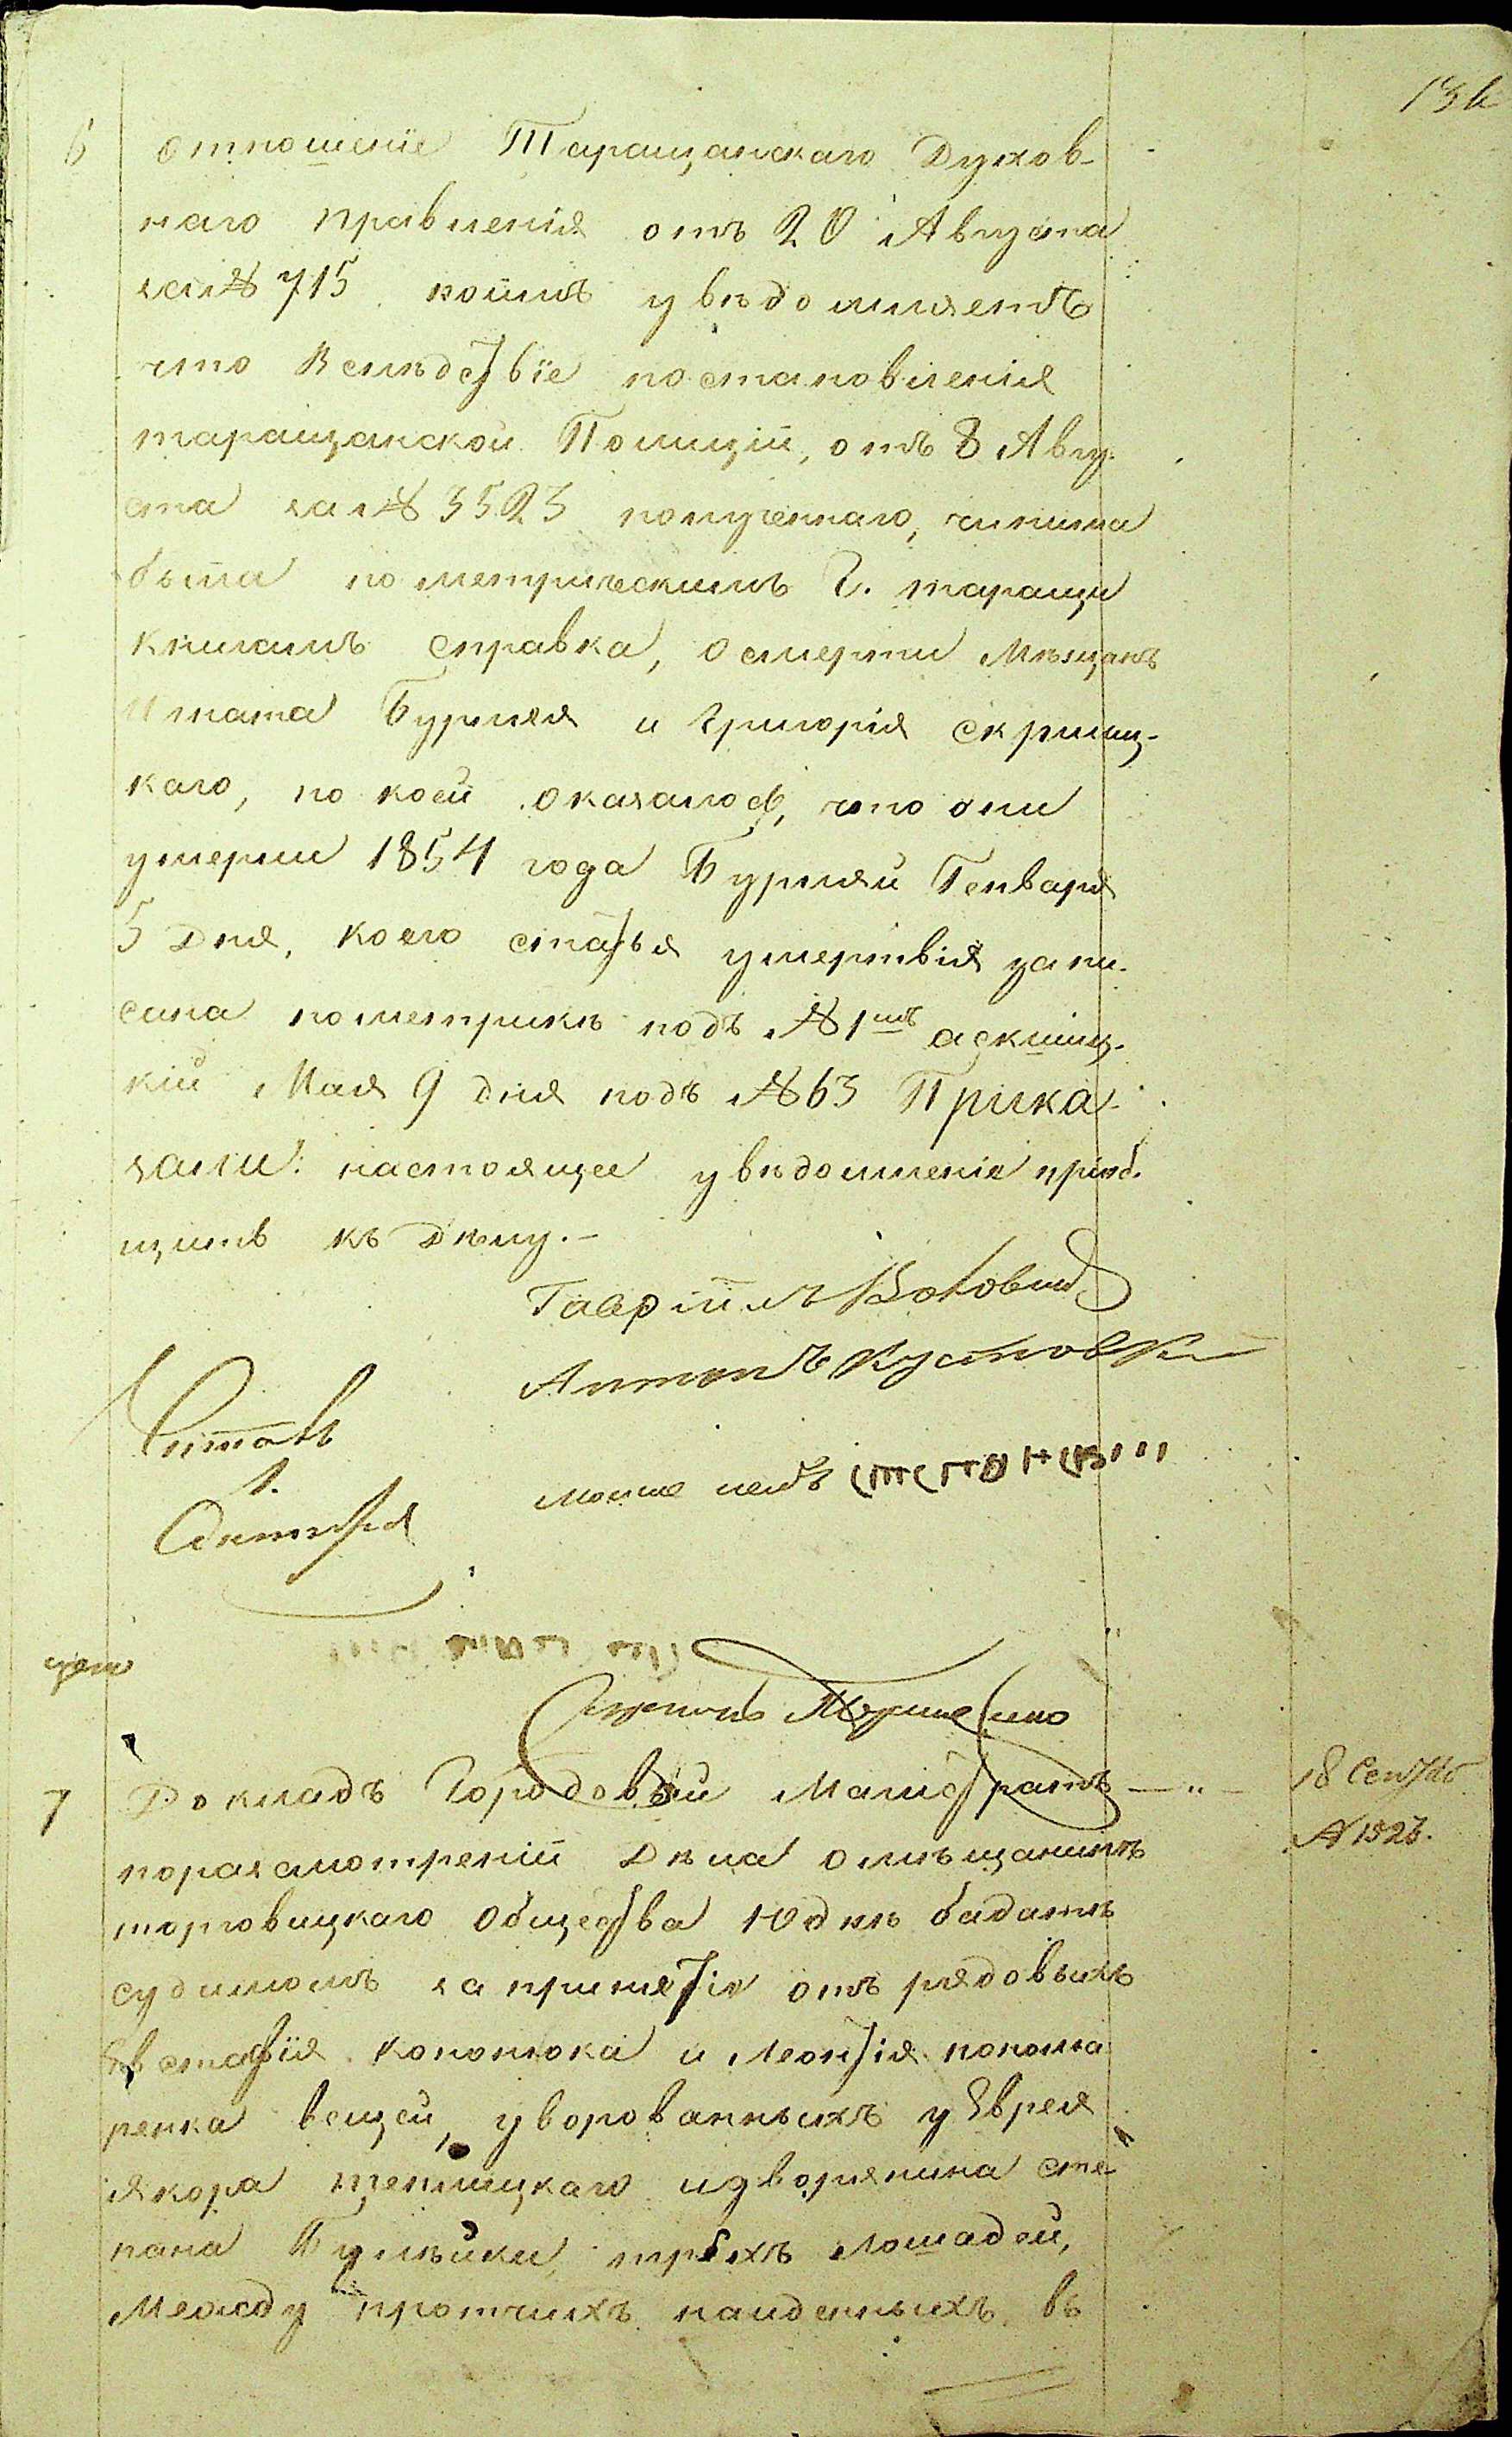 6 отношеніе Таращанскаго Духов-
наго правленія отъ 20 Августа
за № 715 коимъ увѣдомляетъ
что Вслѣдствіе постановленія
таращанской Полиціи, отъ 8 Авгу-
ста за № 3523 полученнаго, чинима
была по метрическимъ Г. таращи
книгамъ справка, о смерти Мѣщанъ
Бурлея и Григорія
каго, по коей оказалось, что они
умерли 1854 года Бурляй Генваря
5 дня, коего статья умертвія запи-
сана по метрикѣ подъ № 1мъ
кій Мая 9 дня подъ № 63 Прика-
зали: настоящее увѣдомленіе пріоб-
щить къ Дѣлу.-
Гавріилъ
Антонъ
Читалъ
1.
Октября
7 Докладъ Городовый Магистратъ — " — 18 Сентяб
поразсмотреніи Дѣла о мѣщанинѣ № 1523.
торговицкаго Общества Юдкѣ
судимомъ за принятіе отъ рядовыхъ
Евстафія Кононюка и Леонтія понома
ренка вещей, уворованныхъ у Еврея
и дворянина Сте
пана трехъ лошадей,
Между протчихъ найденныхъ въ